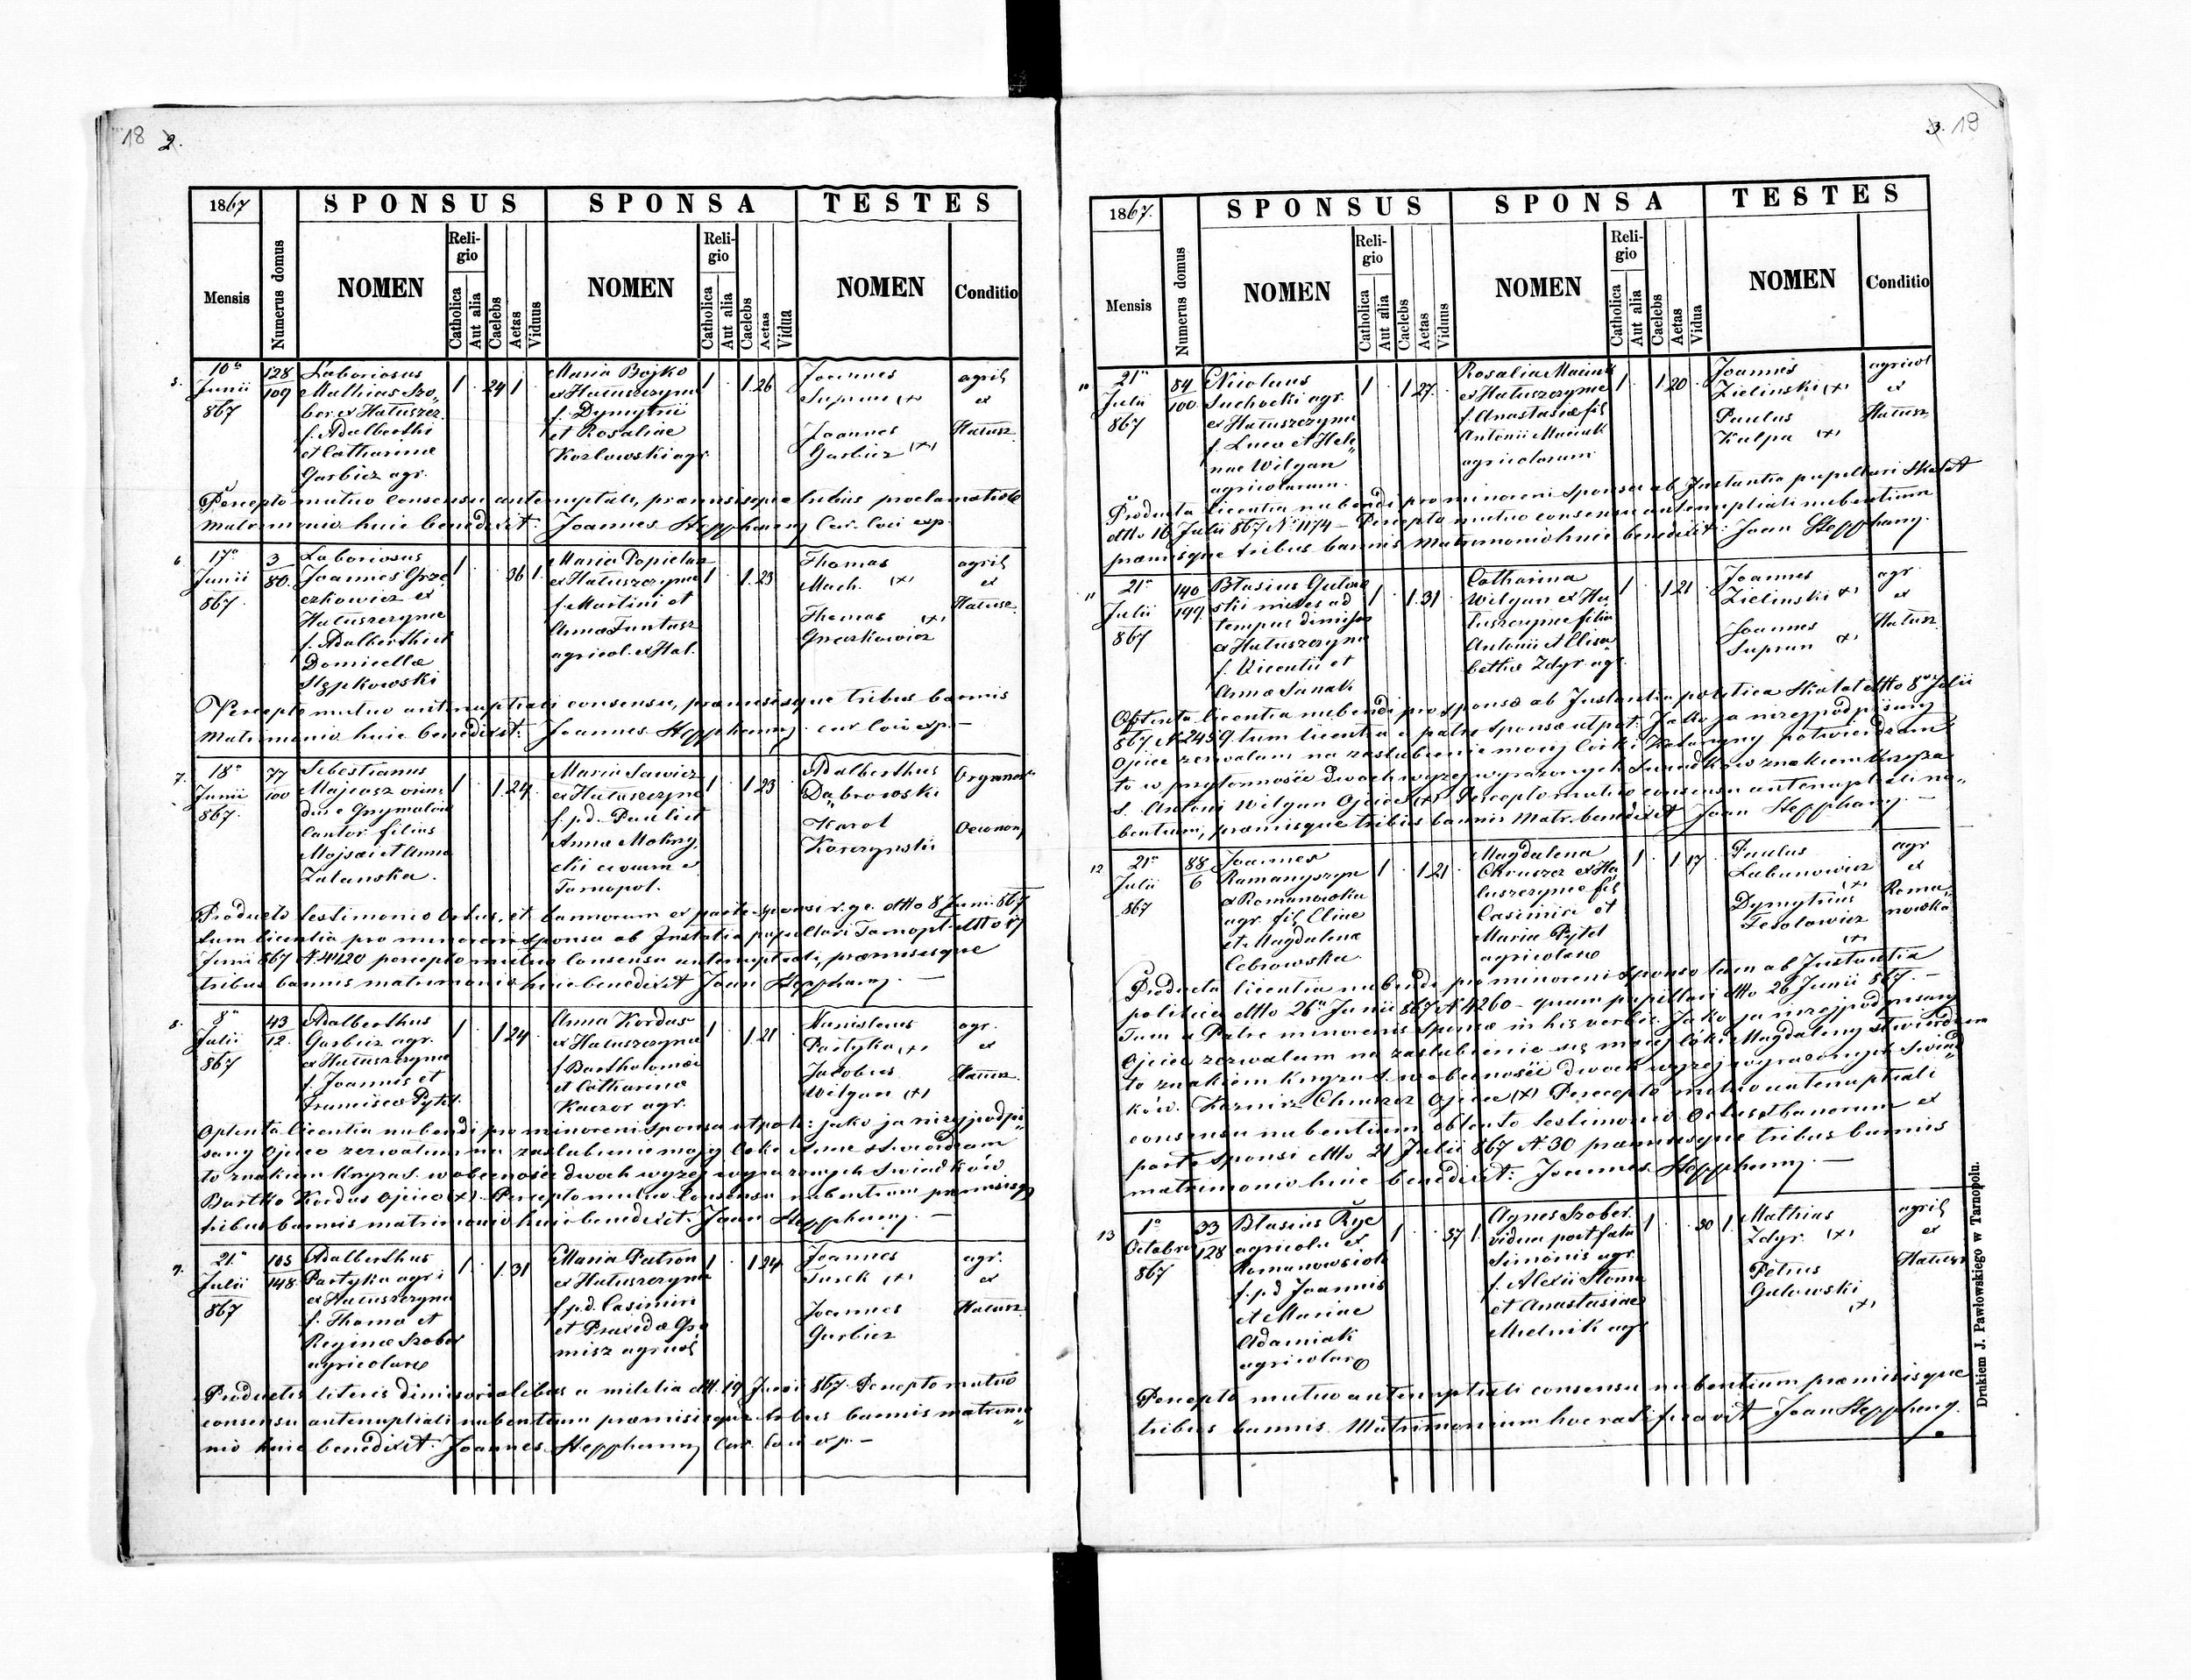 18 2.
1867
SPONSUS
SPONSA
TESTES
Mensis
Numerus domus
NOMEN
Religio
Catholica
Aut alia
Caelebs
Aetas
Viduus
NOMEN
Religio
Catholica
Aut alia
Caelebs
Aetas
Vidua
NOMEN
Conditio
5.
10a
Junii
867
128
109
Laboriosus
Mathias Szo„
ber ex Hałuszcz.
f. Adalberthi
et Catharinae
Garbicz agr.
1 . 24 1
Maria Bojko
ex Hałuszczyne
f. Dymytrii
et Rosaliae
Kozlowski agr
1 . 1 26
Joannes
Supran (+)
Joannes
Garbicz (+)
agril
ex
Hałusz.
Percepto mutuo consensu antenuptiali, praemissisque tribus proclamation
Matrimonio huic benedixit: Joannes Stepphany Cur. loci exp.
6
17a
Junii
867.
3
80.
Laboriosus
Joannes Grze
czkowicz ex
Hałuszczyne
f. Adalberthi et
Domicellae
Stępkowski
1 . 36 1.
Maria Popielar
ex Hałuszczyne
f. Martini et
Annae Funtasz
agricol. ex Hał.
1 . 1. 23
Thomas
Mach. (+)
Thomas (+)
Greczkowicz
agril
ex
Hałusz.
Percepto mutuo antenuptiali consensu, praemissisque tribus bannis
Matrimonio huic benedixit: Joannes Stepphany cur loci exp.—
7.
18a
Junii
867.
77
100
Sebestianus
Majcasz oriun
dus e Grzymałow
Cantor filius
Mojsei et Anna
Załanska.
1 . 1 24.
Maria Sawicz
ex Hałuszczyne
f. p.d. Pauli et
Anna Motry
ckii civium ex
Tarnopol.
1 . 1 23
Adalberthus
Dąbrowski
Karol
Korczynski
Organar.
Oeconom
Producto testimonio Ortus, et bannorum ex parte sponsi r. g. c. ddto 8 Junii 867
tum licentia pro minoreni sponsa ab Instatia pupillari Tarnopl. ddto 17
Junii 867 N. 4420 percepto mutuo Consensu antenuptiali, praemissisque
tribus bannis matrimonio huic benedixit Joan Stepphany.—
8.
8a
Julii
867
43
12.
Adalberthus
Garbicz agr.
ex Hałuszczyne
f. Joannis et
Francisca Pytel.
1 . 1 24
Anna Kordus
ex Hałuszczyne
f. Bartholomaei
et Catharinae
Kaczor agr.
1 . 1. 21
Stanislaus
Partyka (+)
Jacobus
Wilgan (+)
agr.
ex
Hałusz.
Optenta licentia nubendi pro minoreni sponsa utpote: jako ja nizej podpi„
sany Ojciec zezwalam na zaslubienie mojej Corki Anne stwierdzam
to znakiem Krzyza S. w obecnosci dwoch wyzej wyrazonych Swiadków
Bartko Kordus Ojciec (+). Percepto mutuo Consensu nubentium praemissisq
tribus bannis matrimonio huic benedixit. Joan Steppheny.—
9.
21a
Julii
867
105
148.
Adalberthus
Partyka agri
ex Hałuszczyne
f. Thomae et
Reginae Szober
agricolare
1 . 1 31
Maria Patron
ex Hałuszczyne
f. p.d. Casimiri
et Praxedae Gre
misz agricol
1 . 1 24
Joannes
Turek (+)
Joannes
Garbicz
agr.
ex
Hałusz
Productis literis dimissorialibus a militia dd. 19 Junii 867. Percepto mutuo
consensu antenuptiali nubentium praemissisque tribus bannis matrimo„
nio huic benedixit. Joannes Steppheny Cur. loci exp.—
3. 19
1867.
SPONSUS
SPONSA
TESTES
Mensis
Numerus domus
NOMEN
Religio
Catholica
Aut alia
Caelebs
Aetas
Viduus
NOMEN
Religio
Catholica
Aut alia
Caelebs
Aetas
Vidua
NOMEN
Conditio
10
21a
Julii
867
84
100.
Nicolaus
Suchocki agr.
ex Hałuszczyne
f. Luca et Hele„
nae Wilgan
agricolarum.
1 . 1 27.
Rosalia Maciuk
ex Hałuszczyne
f. Anastasiae fil
Antonii Maciuk
agricolarum
1 . 1 20
Joannes
Zielinski (+)
Paulus
Kulpa (+)
agricol
ex
Hałusz
Producta licentia nubendi pro minoreni sponsa ab Instantia pupillari Skałat
ddto 16 Julii 867 N. 1174 — Percepto mutuo consensu antenuptiali nubentium
praemissque tribus bannis Matrimonio huic benedixit: Joan Steppheny.
11
21a
Julii
867
140
149.
Blasius Gutow
ski miles ad
tempus dimissus
ex Hałuszczyne
f. Vicentii et
Annae Sanak
1 . 1. 31.
Catharina
Wilgan ex Ha
łuszczyne filia
Antonii et Elisa„
bethae Zdyr agr.
1 . 1 21
Joannes
Zielinski (+)
Joannes
Supran (+)
agr.
ex
Hałusz
Optenta licentia nubendi pro sponso ab Instantia politica Skałat ddto 8 Julii
867 N. 2459. tum licentia a patre sponsae utpote: Jako ja nizejpodpisany
Ojciec zezwalam na zaslubienie mojej Córki Katarzyny potwierdzam
to w przytomnosci dwoch wyzej wyrazonych Swiadków znakiem Krzyza
S. Antoni Wilgan Ojciec (+). Percepto mutuo consensu antenuptiali nu„
bentium, praemissque tribus bannis Matr. benedixit Joan Steppheny.—
12
21a
Julii
867
88
6
Joannes
Ramanyszyn
ex Romanowka
agr. fil Eliae
et Magdalena
Cebrowska
1 . 1 21
Magdalena
Chruszcz ex Ha
łuszczyne fil
Casimiri et
Maria Pytel
agricolare
1 . 1 17
Paulus
Labunowicz
(+)
Dymytrius
Fesolowicz
(+)
agr
ex
Roma„
nowka
Producta licentia nubendi pro minoreni sponso tum ab Instantia
politica ddto 26a Junii 867 N. 4260 — quam pupillari ddto 26 Junii 867.—
Tum a Patre minorenis sponsae in his verbis: Jako ja nizejpodpisany
Ojciec zezwalam na zaslubienie się mojej Córki Magdaleny stwierdzam
to znakiem Krzyza S. w obecnosci dwoch wyzej wyrazonych Swiad
ków. Kazmirz Chruszcz Ojciec (+) Percepto mutuo antenuptiali
consensu nubentium, oblento testimonio Ortus, et banorum ex
parte sponsi ddto 21 Julii 867 N. 30 praemissque tribus bannis
matrimonio huic benedixit: Joannes Steppheny.—
13
1a
Octobris
867
33
128
Blasius Ryc
agricola ex
Romanowsiolo
f. p.d Joannis
et Mariae
Adamiak
agricolare
1 . 37 1.
Agnes Szober.
vidua post fata
Simonis agr.
f. Alexii Stoma
et Anastasiae
Melnik agr
1 . 30 1.
Mathias
Zdyr. (+)
Petrus
Gutowski
(+)
agril
ex
Hałusz
Percepto mutuo antenuptiali consensu nubentium praemissisque
tribus bannis. Matrimonium hoc ratificavit Joan Steppheny.
Drukiem J. Pawłowskiego w Tarnopolu.